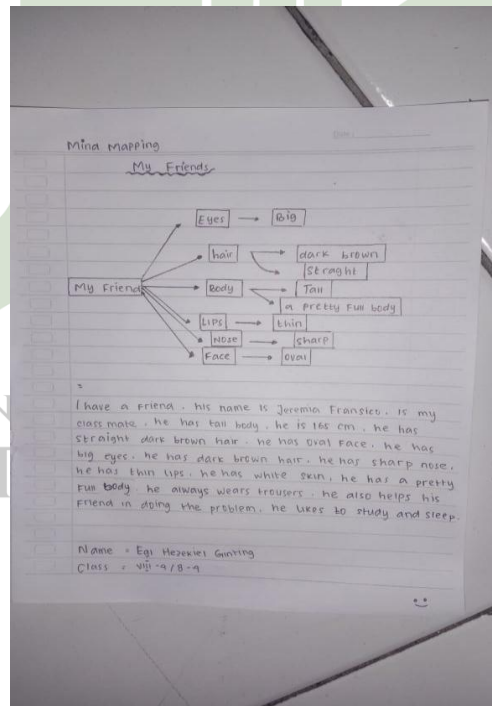 Date :
Mind Mapping
My Friends
Eyes → Big
hair → dark brown
Straght
My Friend
Body → Tall
a pretty full body
Lips → thin
Nose → sharp
Face → oval
I have a friend. his name is Jeremia Fransico. is my
class mate. he has tall body. he is 165 cm. he has
straight dark brown hair. he has oval Face. he has
big eyes. he has dark brown hair. he has sharp nose.
he has thin lips. he has white skin, he has a pretty
full body. he always wears trousers. he also helps his
friend in doing the problem. he likes to study and sleep.
Name : Egi Hezekiel Ginting
Class : viji-9/8-9